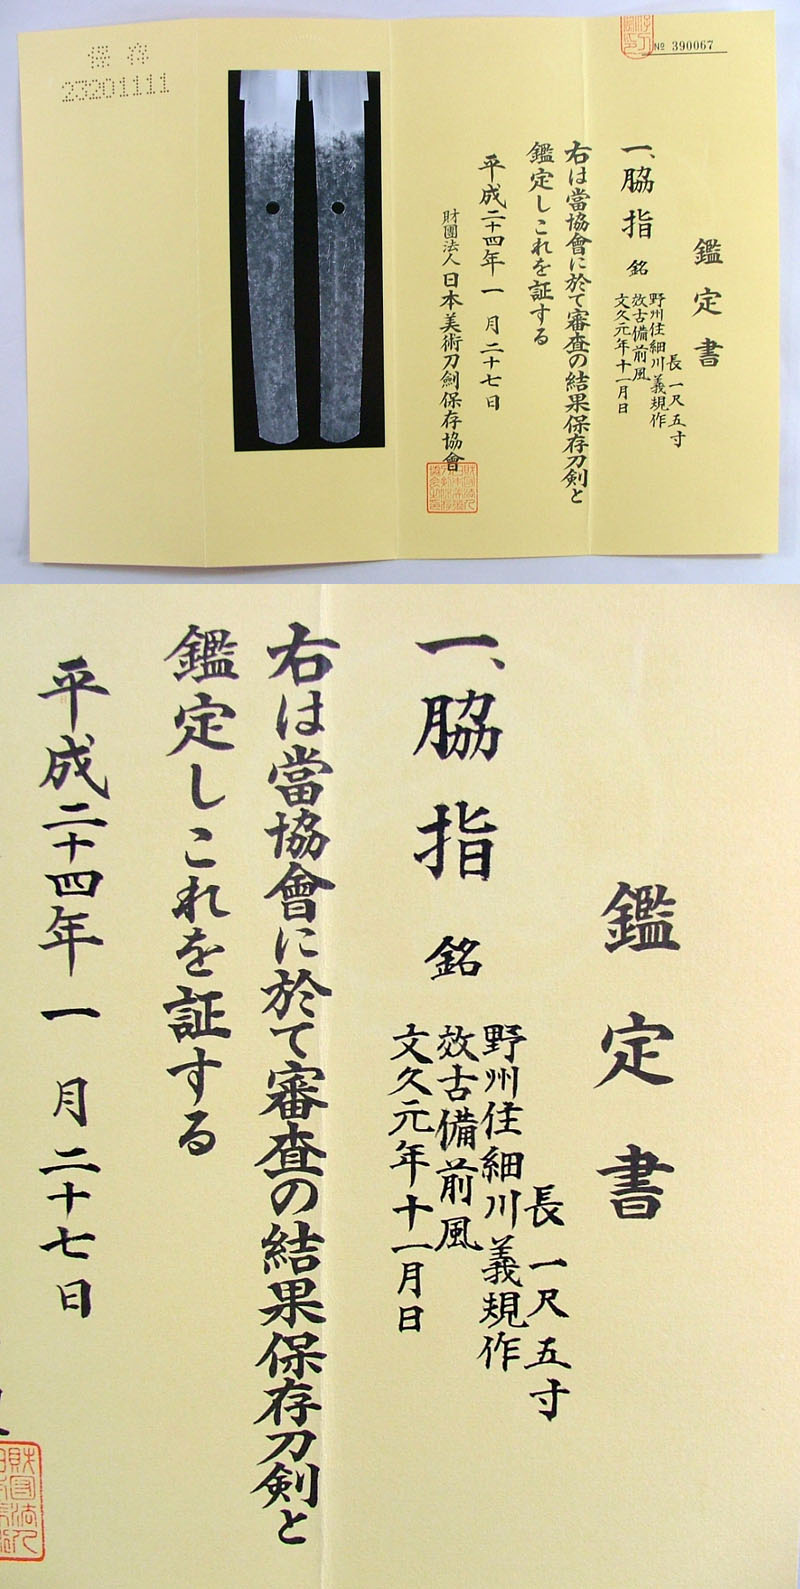 保存
23201111
№ 390067
鑑定書
一、脇指 銘
長 一尺五寸
野州住細川義規作
效古備前風
文久元年十一月日
右は當協會に於て審査の結果保存刀剣と
鑑定しこれを証する
平成二十四年一月二十七日
財團法人 日本美術刀劍保存協會
鑑定書
一、脇指 銘
長 一尺五寸
野州住細川義規作
效古備前風
文久元年十一月日
右は當協會に於て審査の結果保存刀剣と
鑑定しこれを証する
平成二十四年一月二十七日